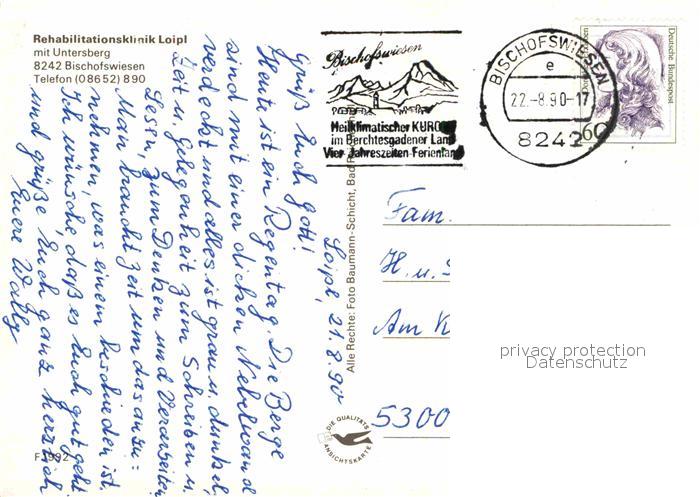 Rehabilitationsklinik Loipl
mit Untersberg
8242 Bischofswiesen
Telefon (0 86 52) 8 90
Bischofswiesen
Heilklimatischer KURO
im Berchtesgadener Land
Vier-Jahreszeiten-Ferienlan
BISCHOFSWIESEN
e
22.-8.90-17
8242
60
Deutsche Bundespost
Loipl, 21.8.90
Grüß Euch Gott!
Heute ist ein Regentag. Die Berge
sind mit einer dicken Nebelwand
verdeckt und alles ist grau u. dunkel,
Zeit u. Gelegenheit zum Schreiben u.
Lesen, zum Denken und Verarbeiten
Man braucht Zeit um das anzu=
nehmen, was einem beschieden ist.
Ich wünsche, daß es Euch gut geht
und grüße Euch ganz herzlich
Euere Wally
Alle Rechte: Foto Baumann-Schicht, Bad
Fam.
H. u. S
Am K
5300
privacy protection
Datenschutz
DIE QUALITÄTS
ANSICHTSKARTE
F 1992